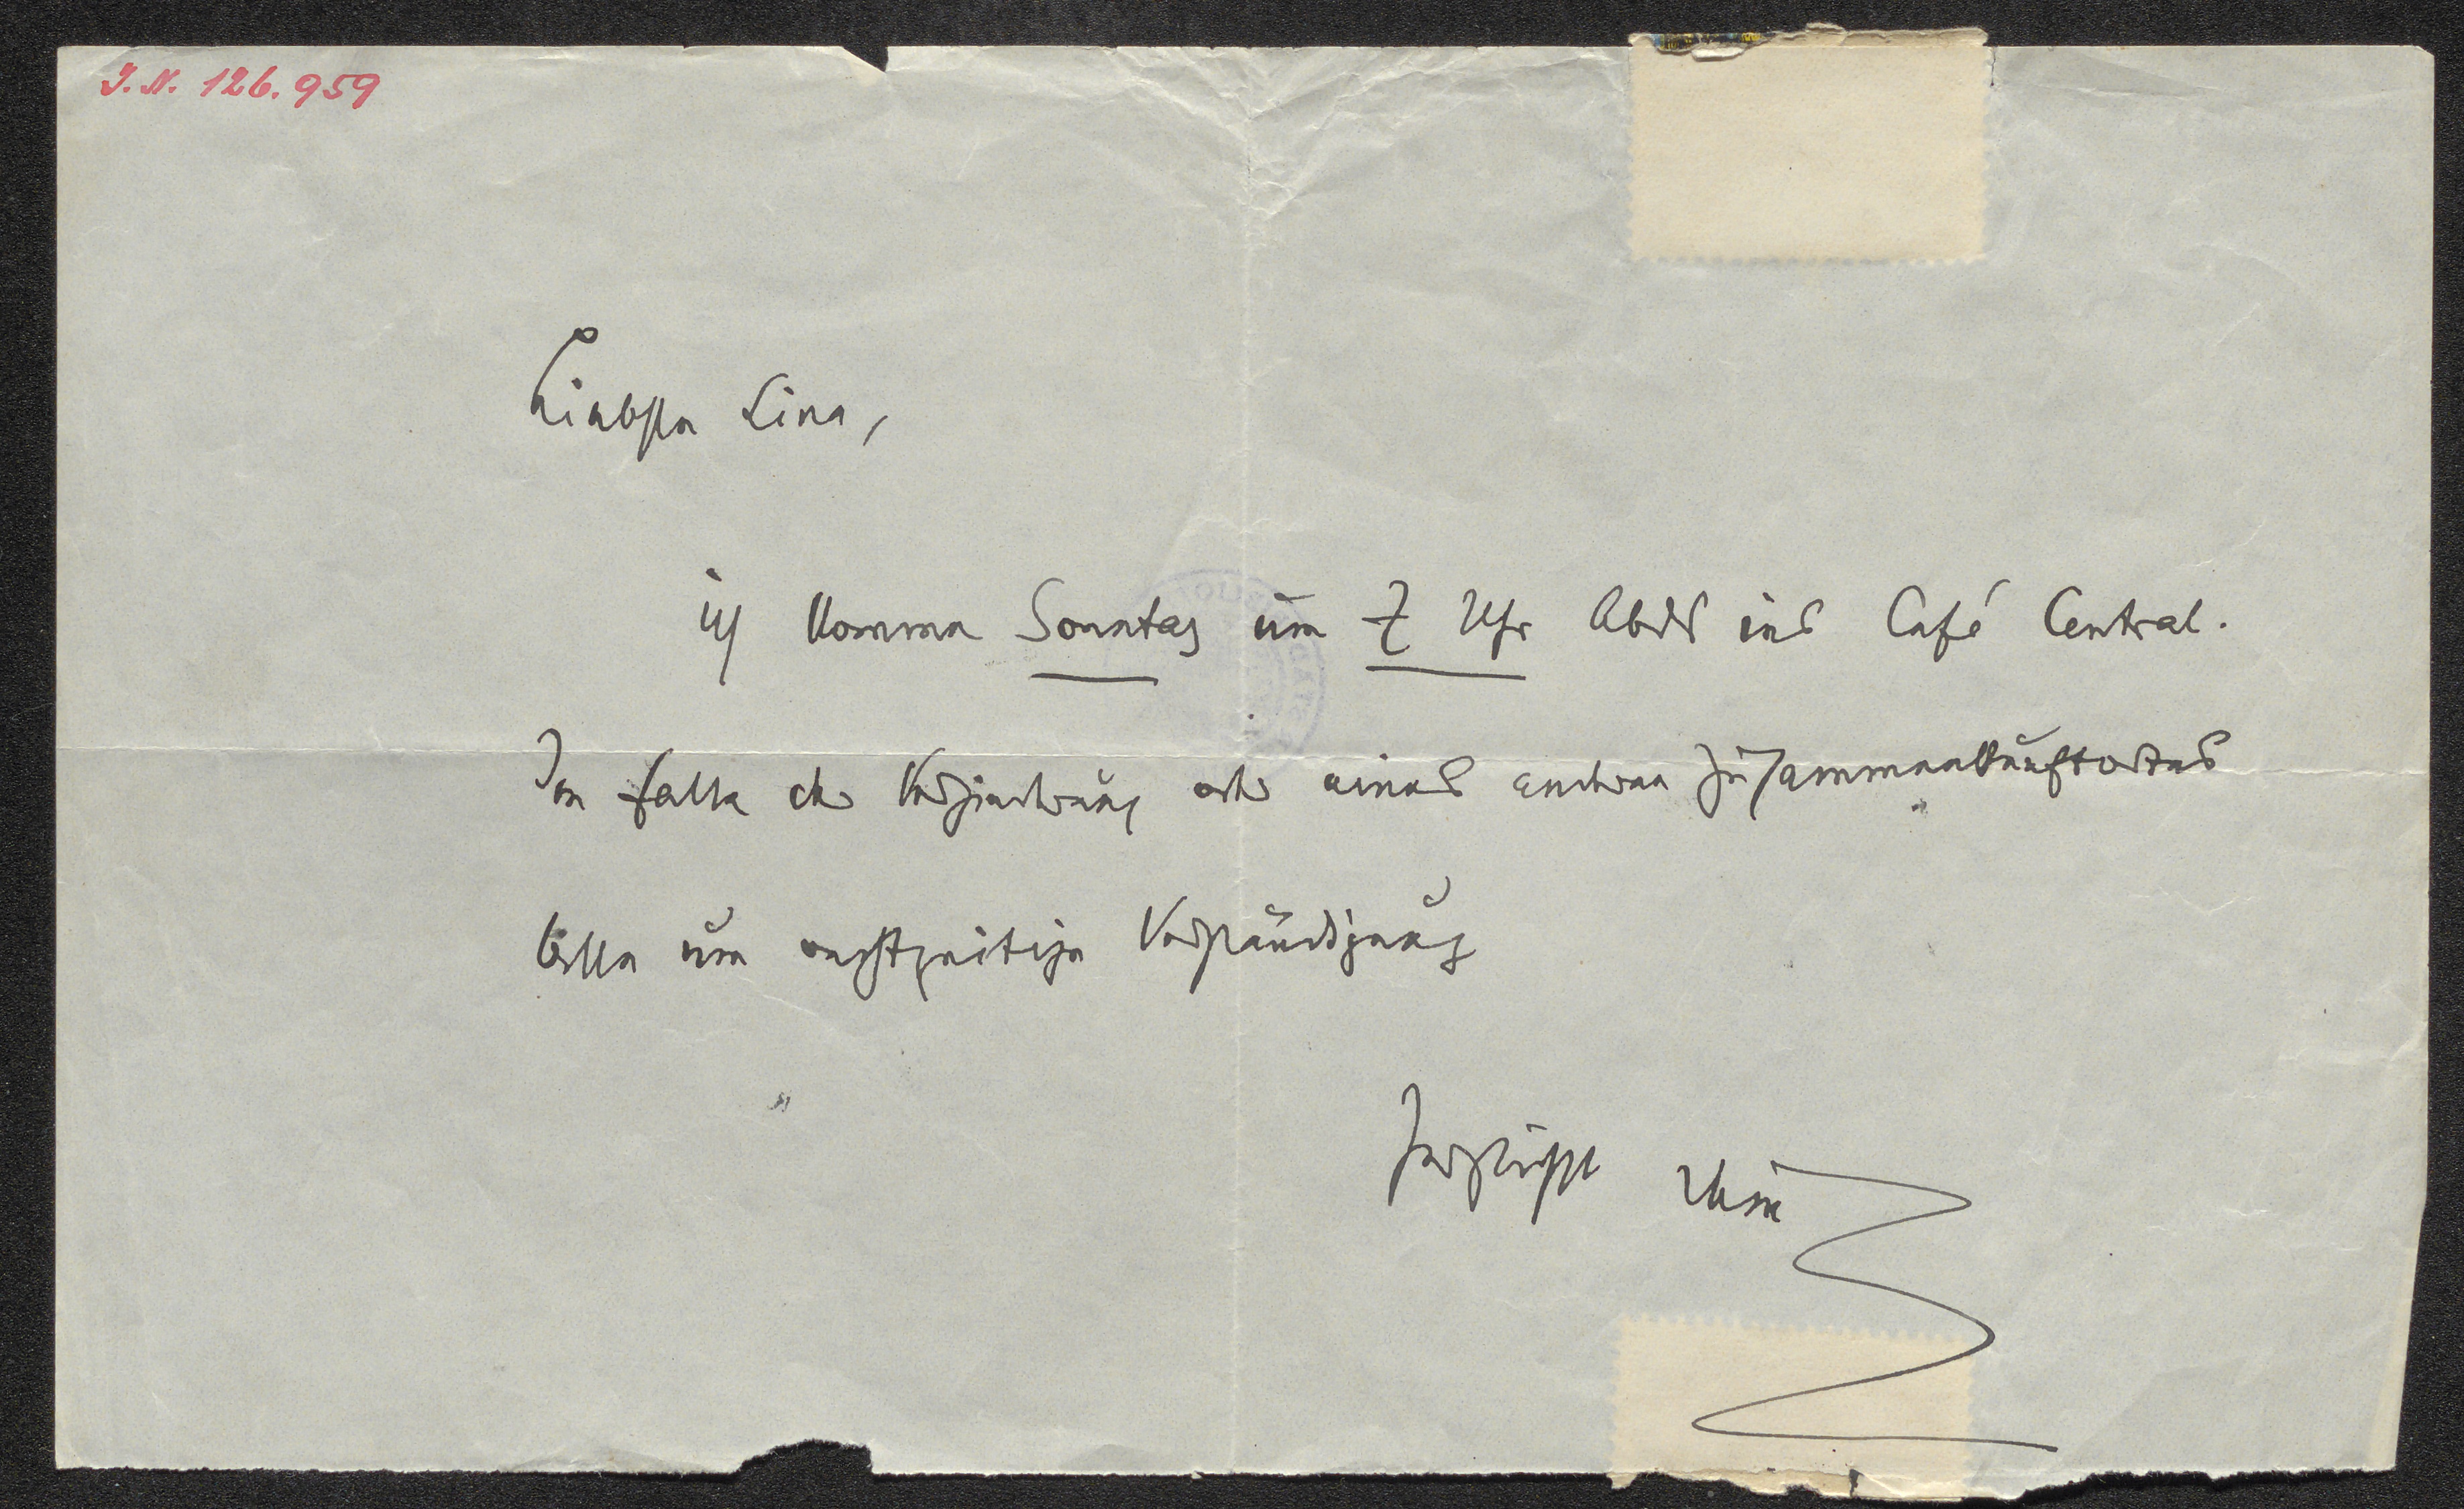 J. N. 126.959
Liebste Lina,
ich komme Sonntag um 7 Uhr Abds ins Café Central.
Im Falle der Verhinderung oder eines anderen Zusammenkunftortes
bitte um rechtzeitige Verständigung
Herzlichst